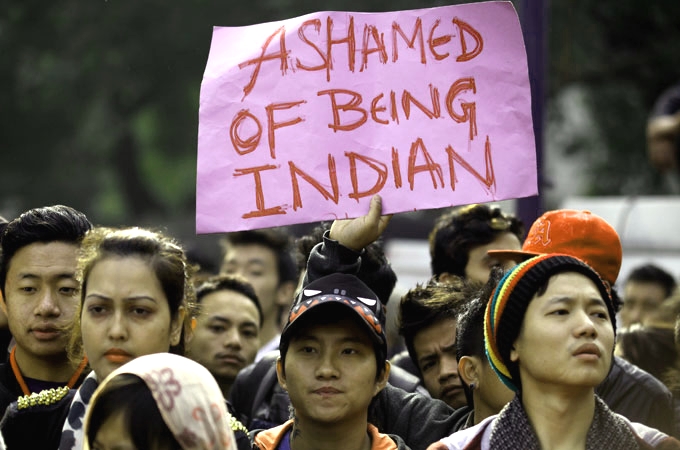 ASHAMED
OF BEING
INDIAN